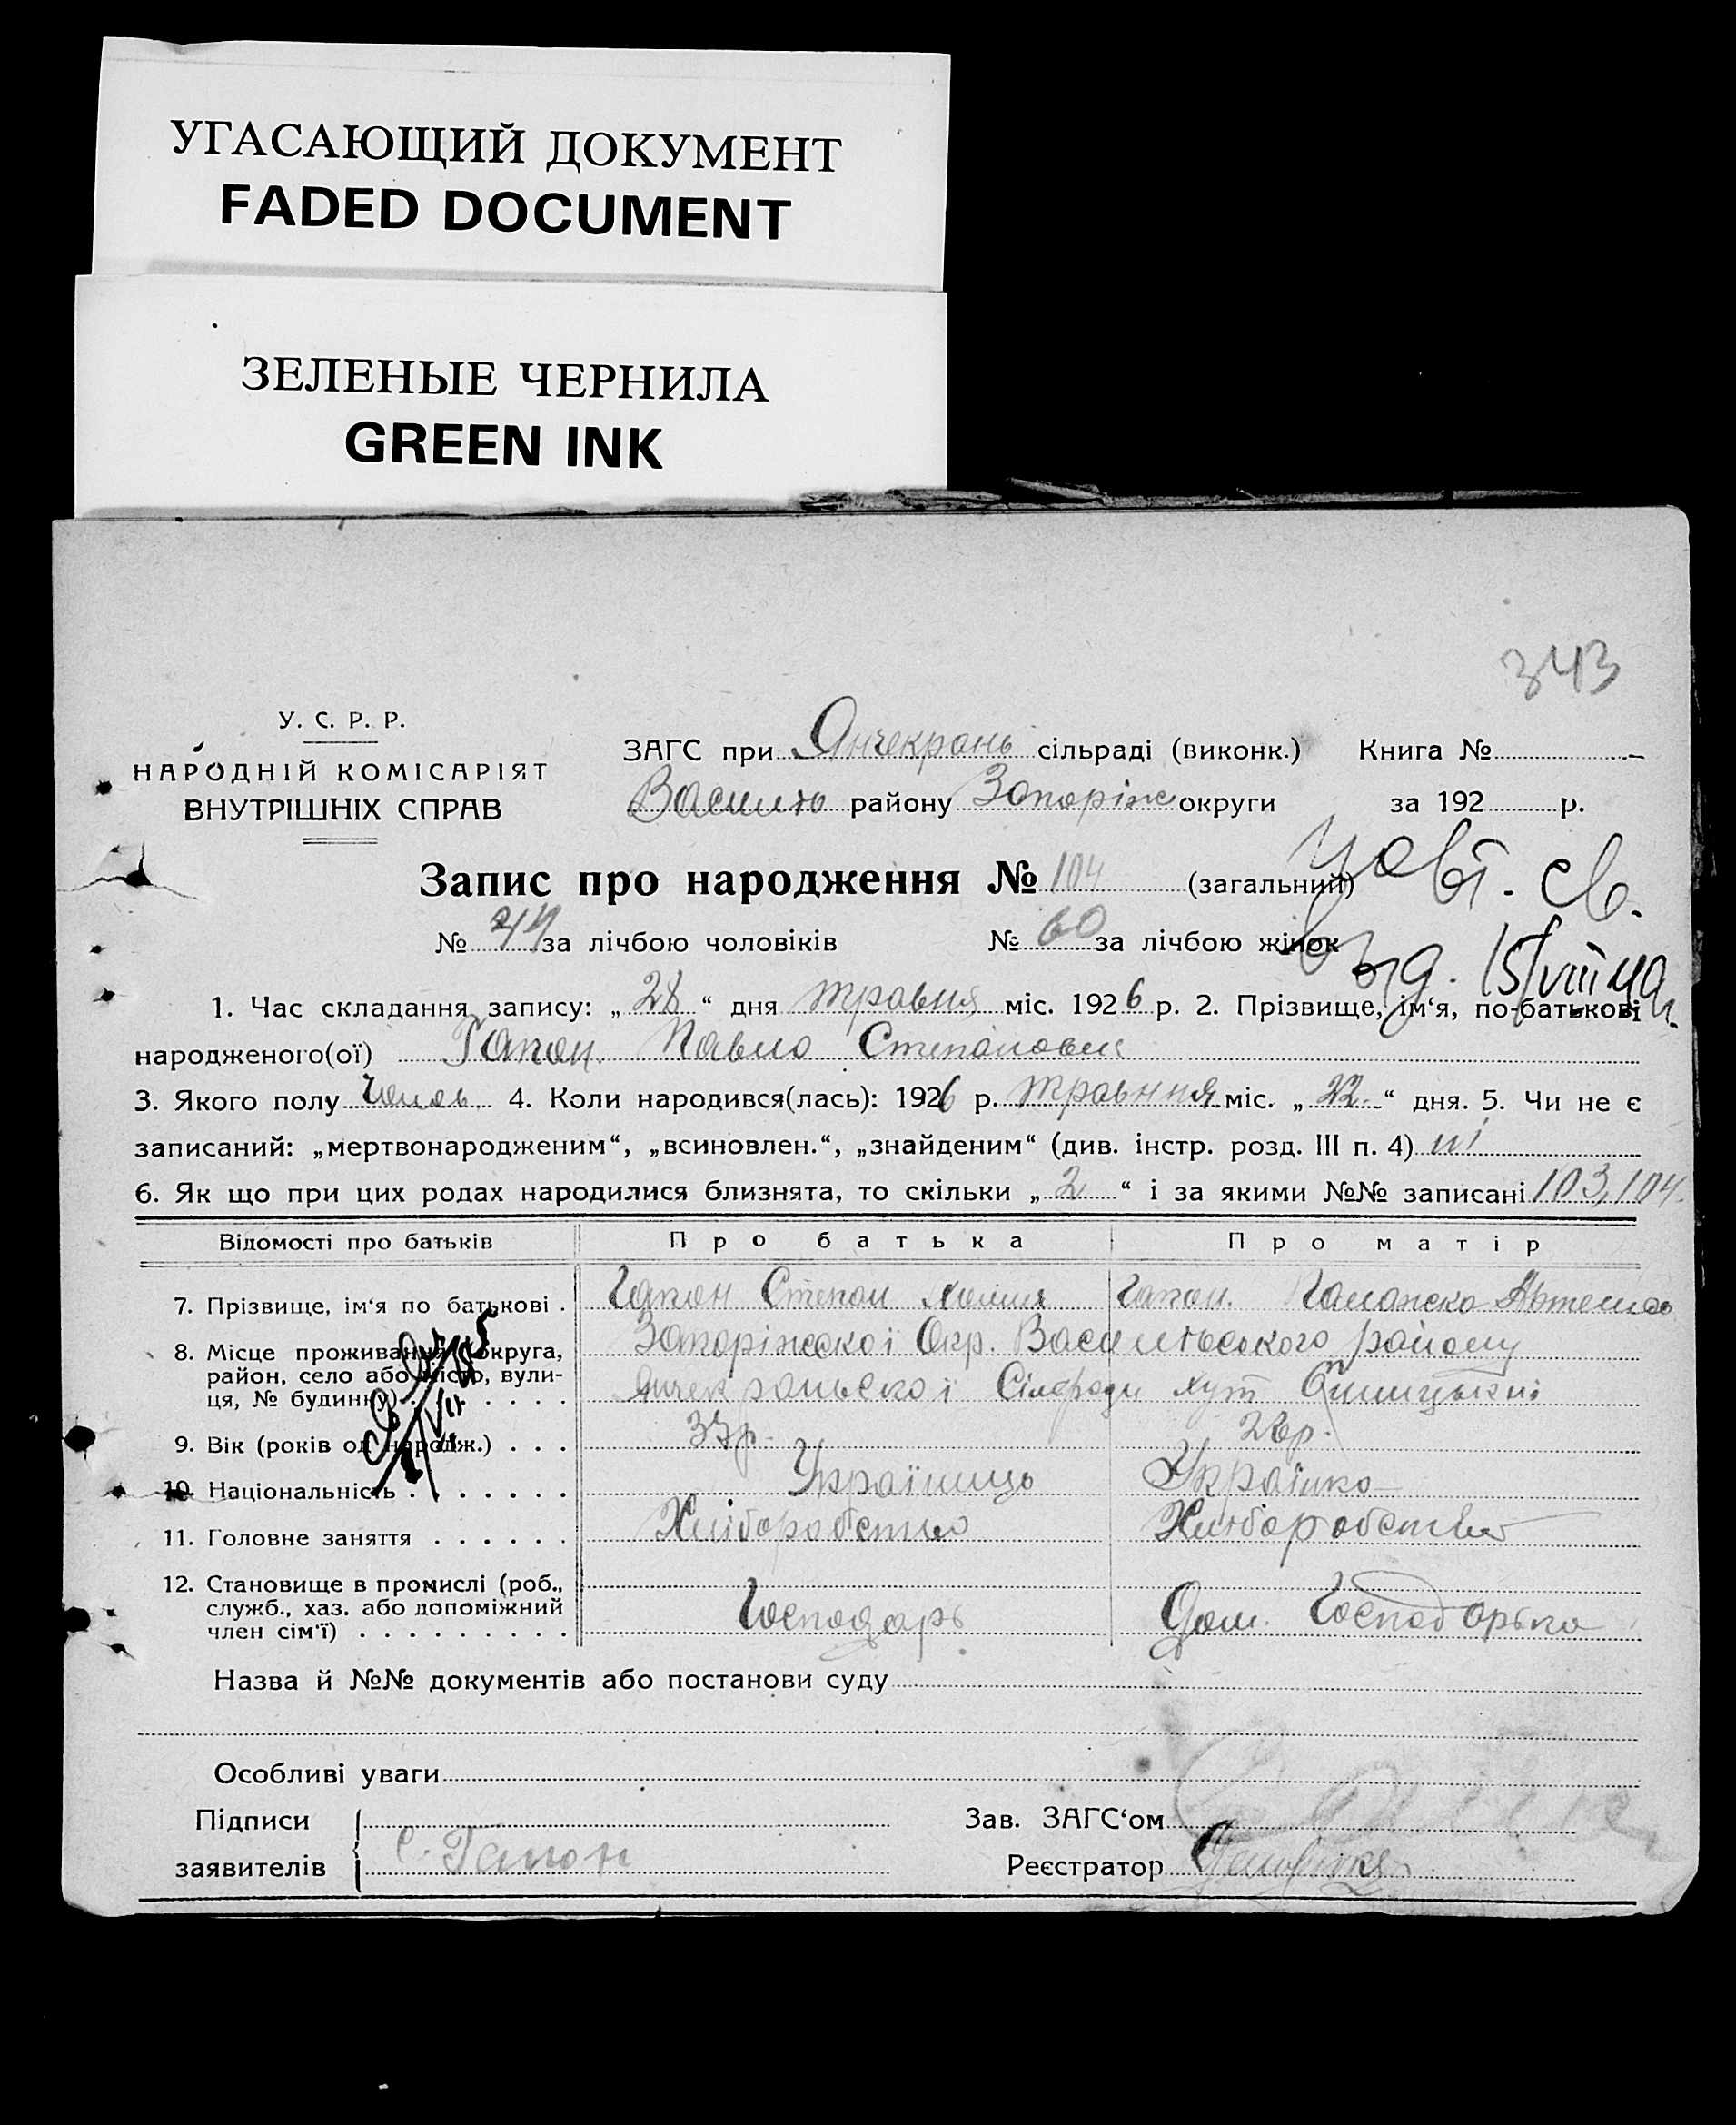 УГАСАЮЩИЙ ДОКУМЕНТ
FADED DOCUMENT
ЗЕЛЕНЫЕ ЧЕРНИЛА
GREEN INK
343
У. С. Р. Р.
НАРОДНІЙ КОМІСАРІЯТ
ВНУТРІШНІХ СПРАВ
ЗАГС при Янчекрань сільраді (виконк.) Книга №
Василь району Запоріж округи за 192 р.
Запис про народження № 104 (загальний)
№ 44 за лічбою чоловіків № 60 за лічбою жінок
1. Час складання запису: „ 28 “ дня травня міс. 1926 р. 2. Прізвище, ім‘я, по-батькові
народженого(ої) Гапон Павло Степанович
3. Якого полу 4. Коли народився(лась): 1926 р. травня міс. „ 22 “ дня. 5. Чи не є
записаний: „мертвонародженим“, „всиновлен.“, „знайденим“ (див. інстр. розд. III п. 4) ні
6. Як що при цих родах народилися близнята, то скільки „ 2 “ і за якими №№ записані 103, 104.
Відомості про батьків Про батька Про матір
7. Прізвище, ім‘я по батькові . Гапон Степан Гапон
8. Місце проживання (округа, Запоріжскоі Окр. Васильевского району
район, село або місто, вули-
ця, № будинку) . . . . . . Янчекраньскої Сілради хут
9. Вік (років од народж.) . . . 33р. 28р.
10. Національність . . . . . . . Українець Українка
11. Головне заняття . . . . . . Хліборобство Хліборобство
12. Становище в промислі (роб.,
служб., хаз. або допоміжний
член сім‘ї) . . . . . . . . . Господарь Дом. Господарька
Назва й №№ документів або постанови суду
Особливі уваги
Підписи
заявителів С. Гапон
Зав. ЗАГС‘ом
Реєстратор